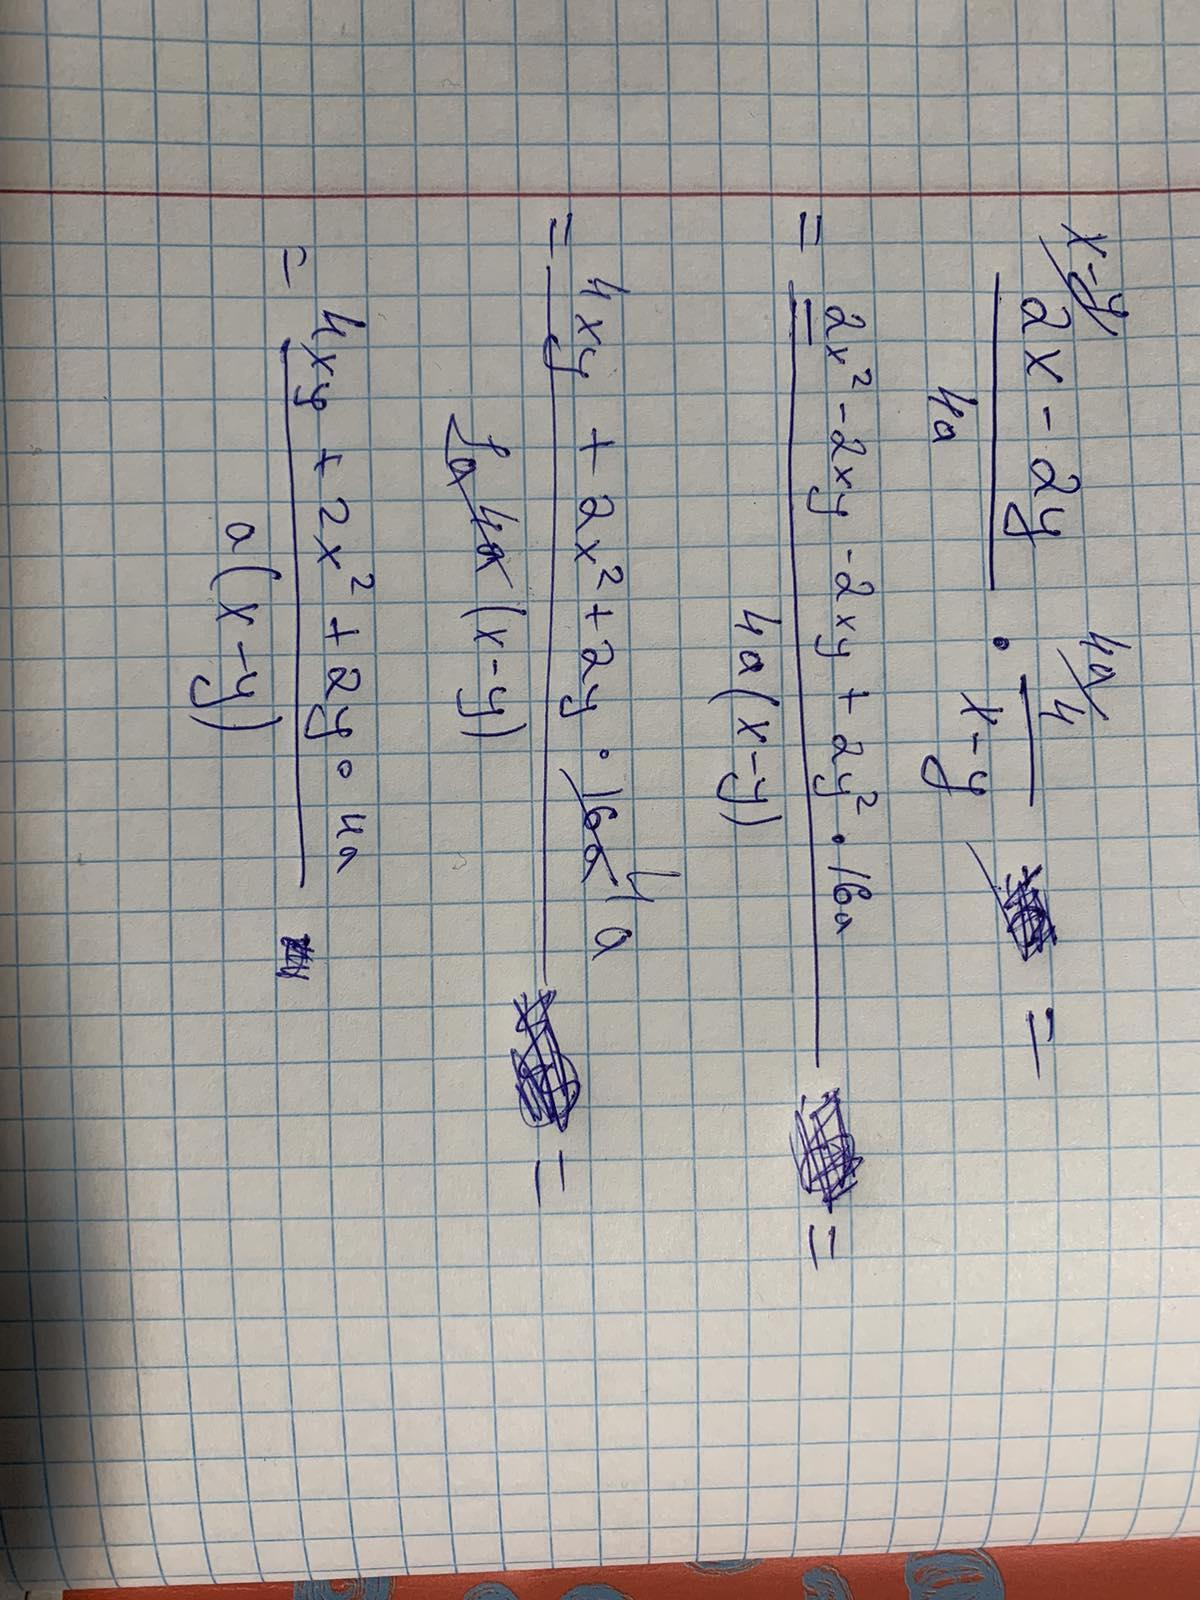 x-y/ 2x - 2y / 4a · 4a/ 4 / x-y =
= 2x² - 2xy - 2xy + 2y² · 16a / 4a(x-y) =
= 4xy + 2x² + 2y · 16a 4a / 4a (x-y) =
= 4xy + 2x² + 2y · 4a / a(x-y)